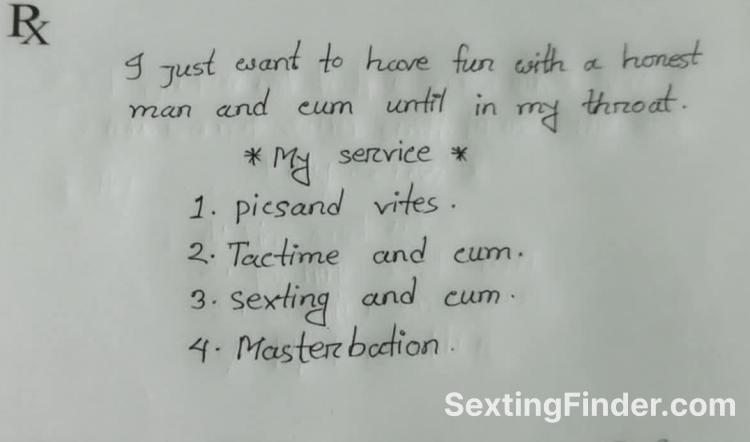 Rx
I just want to hove fun with a honest
man and cum until in my throat.
* My service *
1. picsand vites.
2. Tactime and cum.
3. sexting and cum.
4. Masterbation.
SextingFinder.com